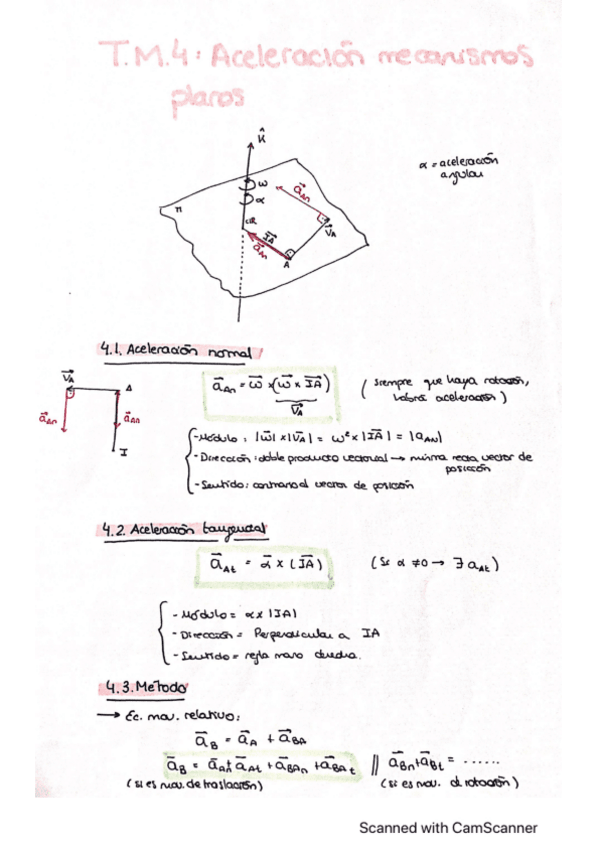 T.M.4: Aceleración mecanismos
planos
k̂
α = aceleración
angular
ω
α
π
a⃗An
I̅A̅
V⃗A
a⃗An
A
4.1. Aceleración normal
V⃗A
A
a⃗An = ω⃗ x (ω⃗ x I̅A̅)
V⃗A
( siempre que haya rotación,
habrá aceleración )
a⃗An
a⃗An
I
- Módulo : |ω⃗| x |V⃗A| = ω² x |I̅A̅| = |aAN|
- Dirección : doble producto vectorial → misma recta vector de
posición
- Sentido : contrario al vector de posición
4.2. Aceleración tangencial
a⃗At = α⃗ x (I̅A̅)
(Si α ≠ 0 → ∃ aAt)
- Módulo = α x |IA|
- Dirección = Perpendicular a IA
- Sentido = regla mano derecha.
4.3. Método
→ Ec. mov. relativo:
a⃗B = a⃗A + a⃗BA
a⃗B = a⃗An + a⃗At + a⃗BAn + a⃗BAt || a⃗Bn + a⃗Bt = ......
(si es mov. de traslación) (si es mov. de rotación)
Scanned with CamScanner